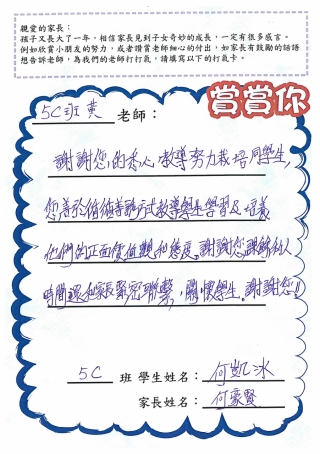 親愛的家長：
孩子又長大了一年，相信家長見到子女奇妙的成長，一定有很多感言。
例如欣賞小朋友的努力，或者讚賞老師細心的付出，如家長有鼓勵的話語
想告訴老師，為我們的老師打打氣，請填寫以下的打氣卡。
賞賞你
5C班黃 老師：
謝謝您的悉心教導努力栽培同學生，
您善於循循善誘方式教導學生學習及培養
他們的正面價值觀和態度。謝謝您課餘私人
時間還和家長緊密聯繫，關懷學生。謝謝您!!
5C 班 學生姓名：何凱冰
家長姓名：何豪賢